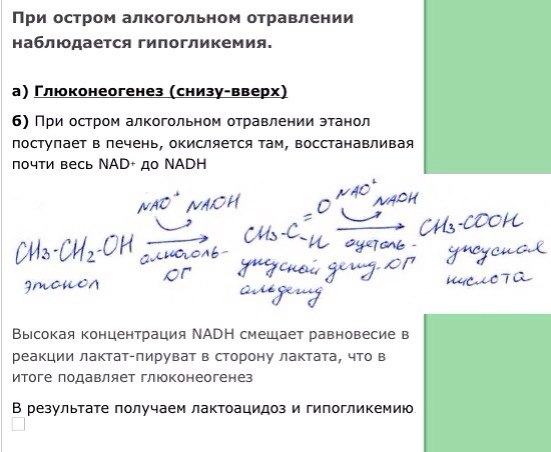 При остром алкогольном отравлении
наблюдается гипогликемия.
а) Глюконеогенез (снизу-вверх)
б) При остром алкогольном отравлении этанол
поступает в печень, окисляется там, восстанавливая
почти весь NAD+ до NADH
NAD+ NADH NAD+ NADH
CH3-CH2-OH CH3-C=O-H CH3-COOH
этанол алкоголь-ДГ уксусный альдегид ацеталь-дегид-ДГ уксусная кислота
Высокая концентрация NADH смещает равновесие в
реакции лактат-пируват в сторону лактата, что в
итоге подавляет глюконеогенез
В результате получаем лактоацидоз и гипогликемию